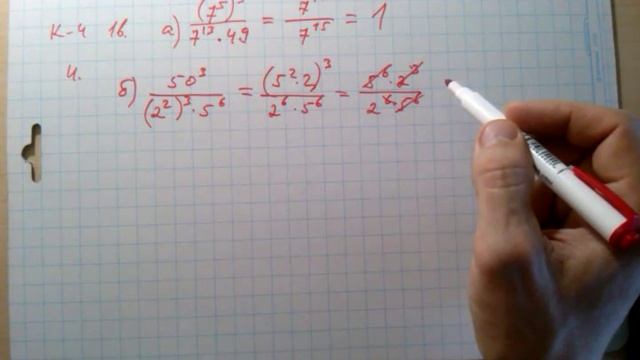 К-4 1в. а) (7⁵)³ / 7¹³ · 49 = 7 / 7¹⁵ = 1
4.
б) 50³ / (2²)³ · 5⁶ = (5² · 2)³ / 2⁶ · 5⁶ = 5⁶ · 2³ / 2⁶ · 5⁶